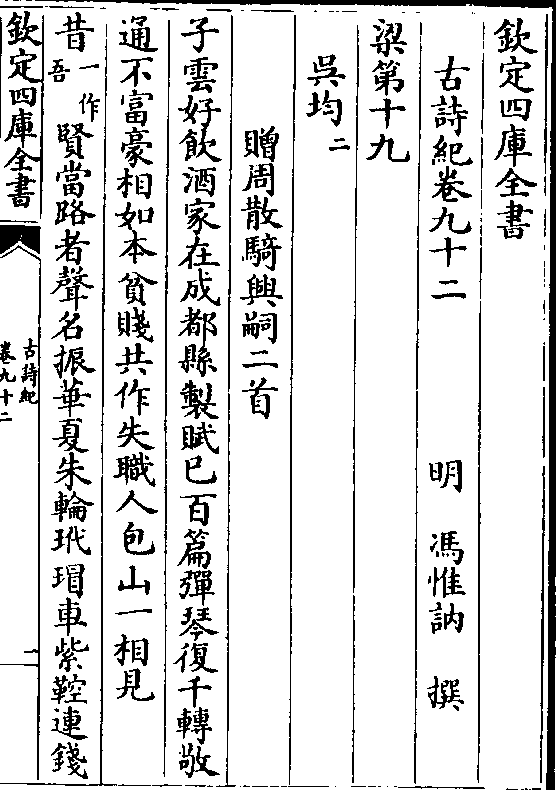 欽定四庫全書
古詩紀卷九十二 明 馮惟訥 撰
梁第十九
吳均二
贈周散騎興嗣二首
子雲好飲酒家在成都縣製賦已百篇彈琴復千轉敬
通不富豪相如本貧賤共作失職人包山一相見
昔一作吾賢當路者聲名振華夏朱輪玳瑁車紫鞚連錢
欽定四庫全書
古詩紀
卷九十二
一